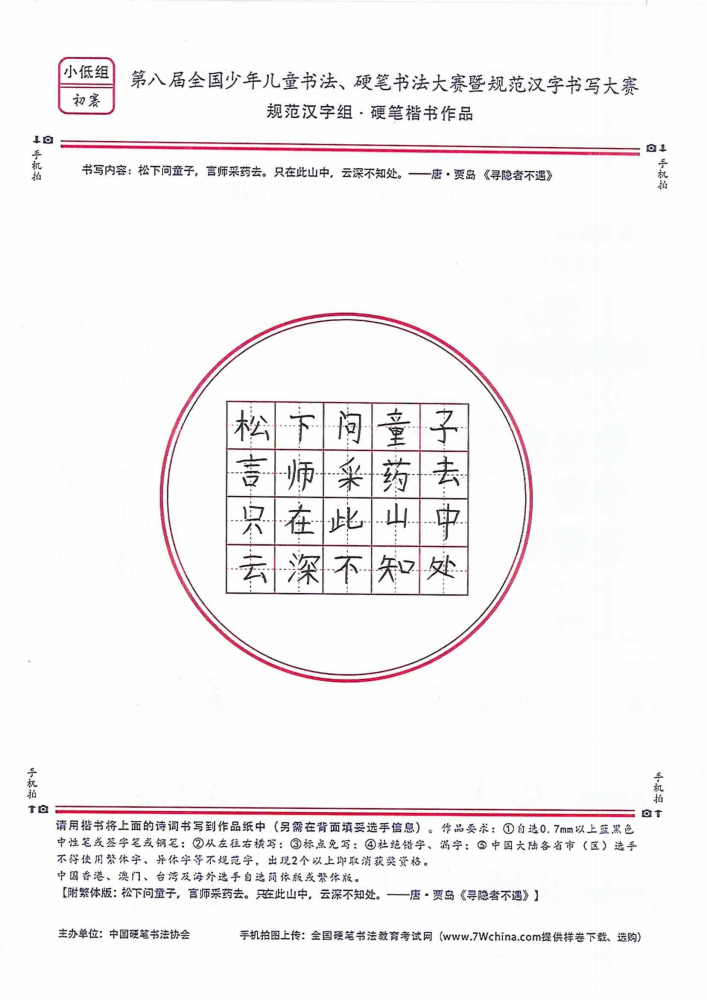 小低组
初赛
第八届全国少年儿童书法、硬笔书法大赛暨规范汉字书写大赛
规范汉字组·硬笔楷书作品
手机拍
手机拍
书写内容：松下问童子，言师采药去。只在此山中，云深不知处。——唐·贾岛《寻隐者不遇》
松下问童子
言师采药去
只在此山中
云深不知处
手机拍
手机拍
请用楷书将上面的诗词书写到作品纸中（另需在背面填妥选手信息）。作品要求：①自选0.7mm以上蓝黑色
中性笔或签字笔或钢笔；②从左往右横写；③标点免写；④杜绝错字、漏字；⑤中国大陆各省市（区）选手
不得使用繁体字、异体字等不规范字，出现2个以上即取消获奖资格。
中国香港、澳门、台湾及海外选手自选简体版或繁体版。
【附繁体版：松下问童子，言师采药去。只在此山中，云深不知处。——唐·贾岛《寻隐者不遇》】
主办单位：中国硬笔书法协会
手机拍图上传：全国硬笔书法教育考试网（www.7Wchina.com提供样卷下载、选购）